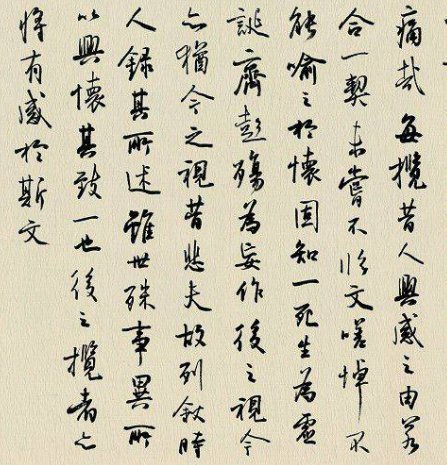 痛哉每攬昔人興感之由若
合一契未嘗不臨文嗟悼不
能喻之於懷固知一死生為虛
誕齊彭殤為妄作後之視今
亦猶今之視昔悲夫故列敘時
人錄其所述雖世殊事異所
以興懷其致一也後之攬者亦
將有感於斯文